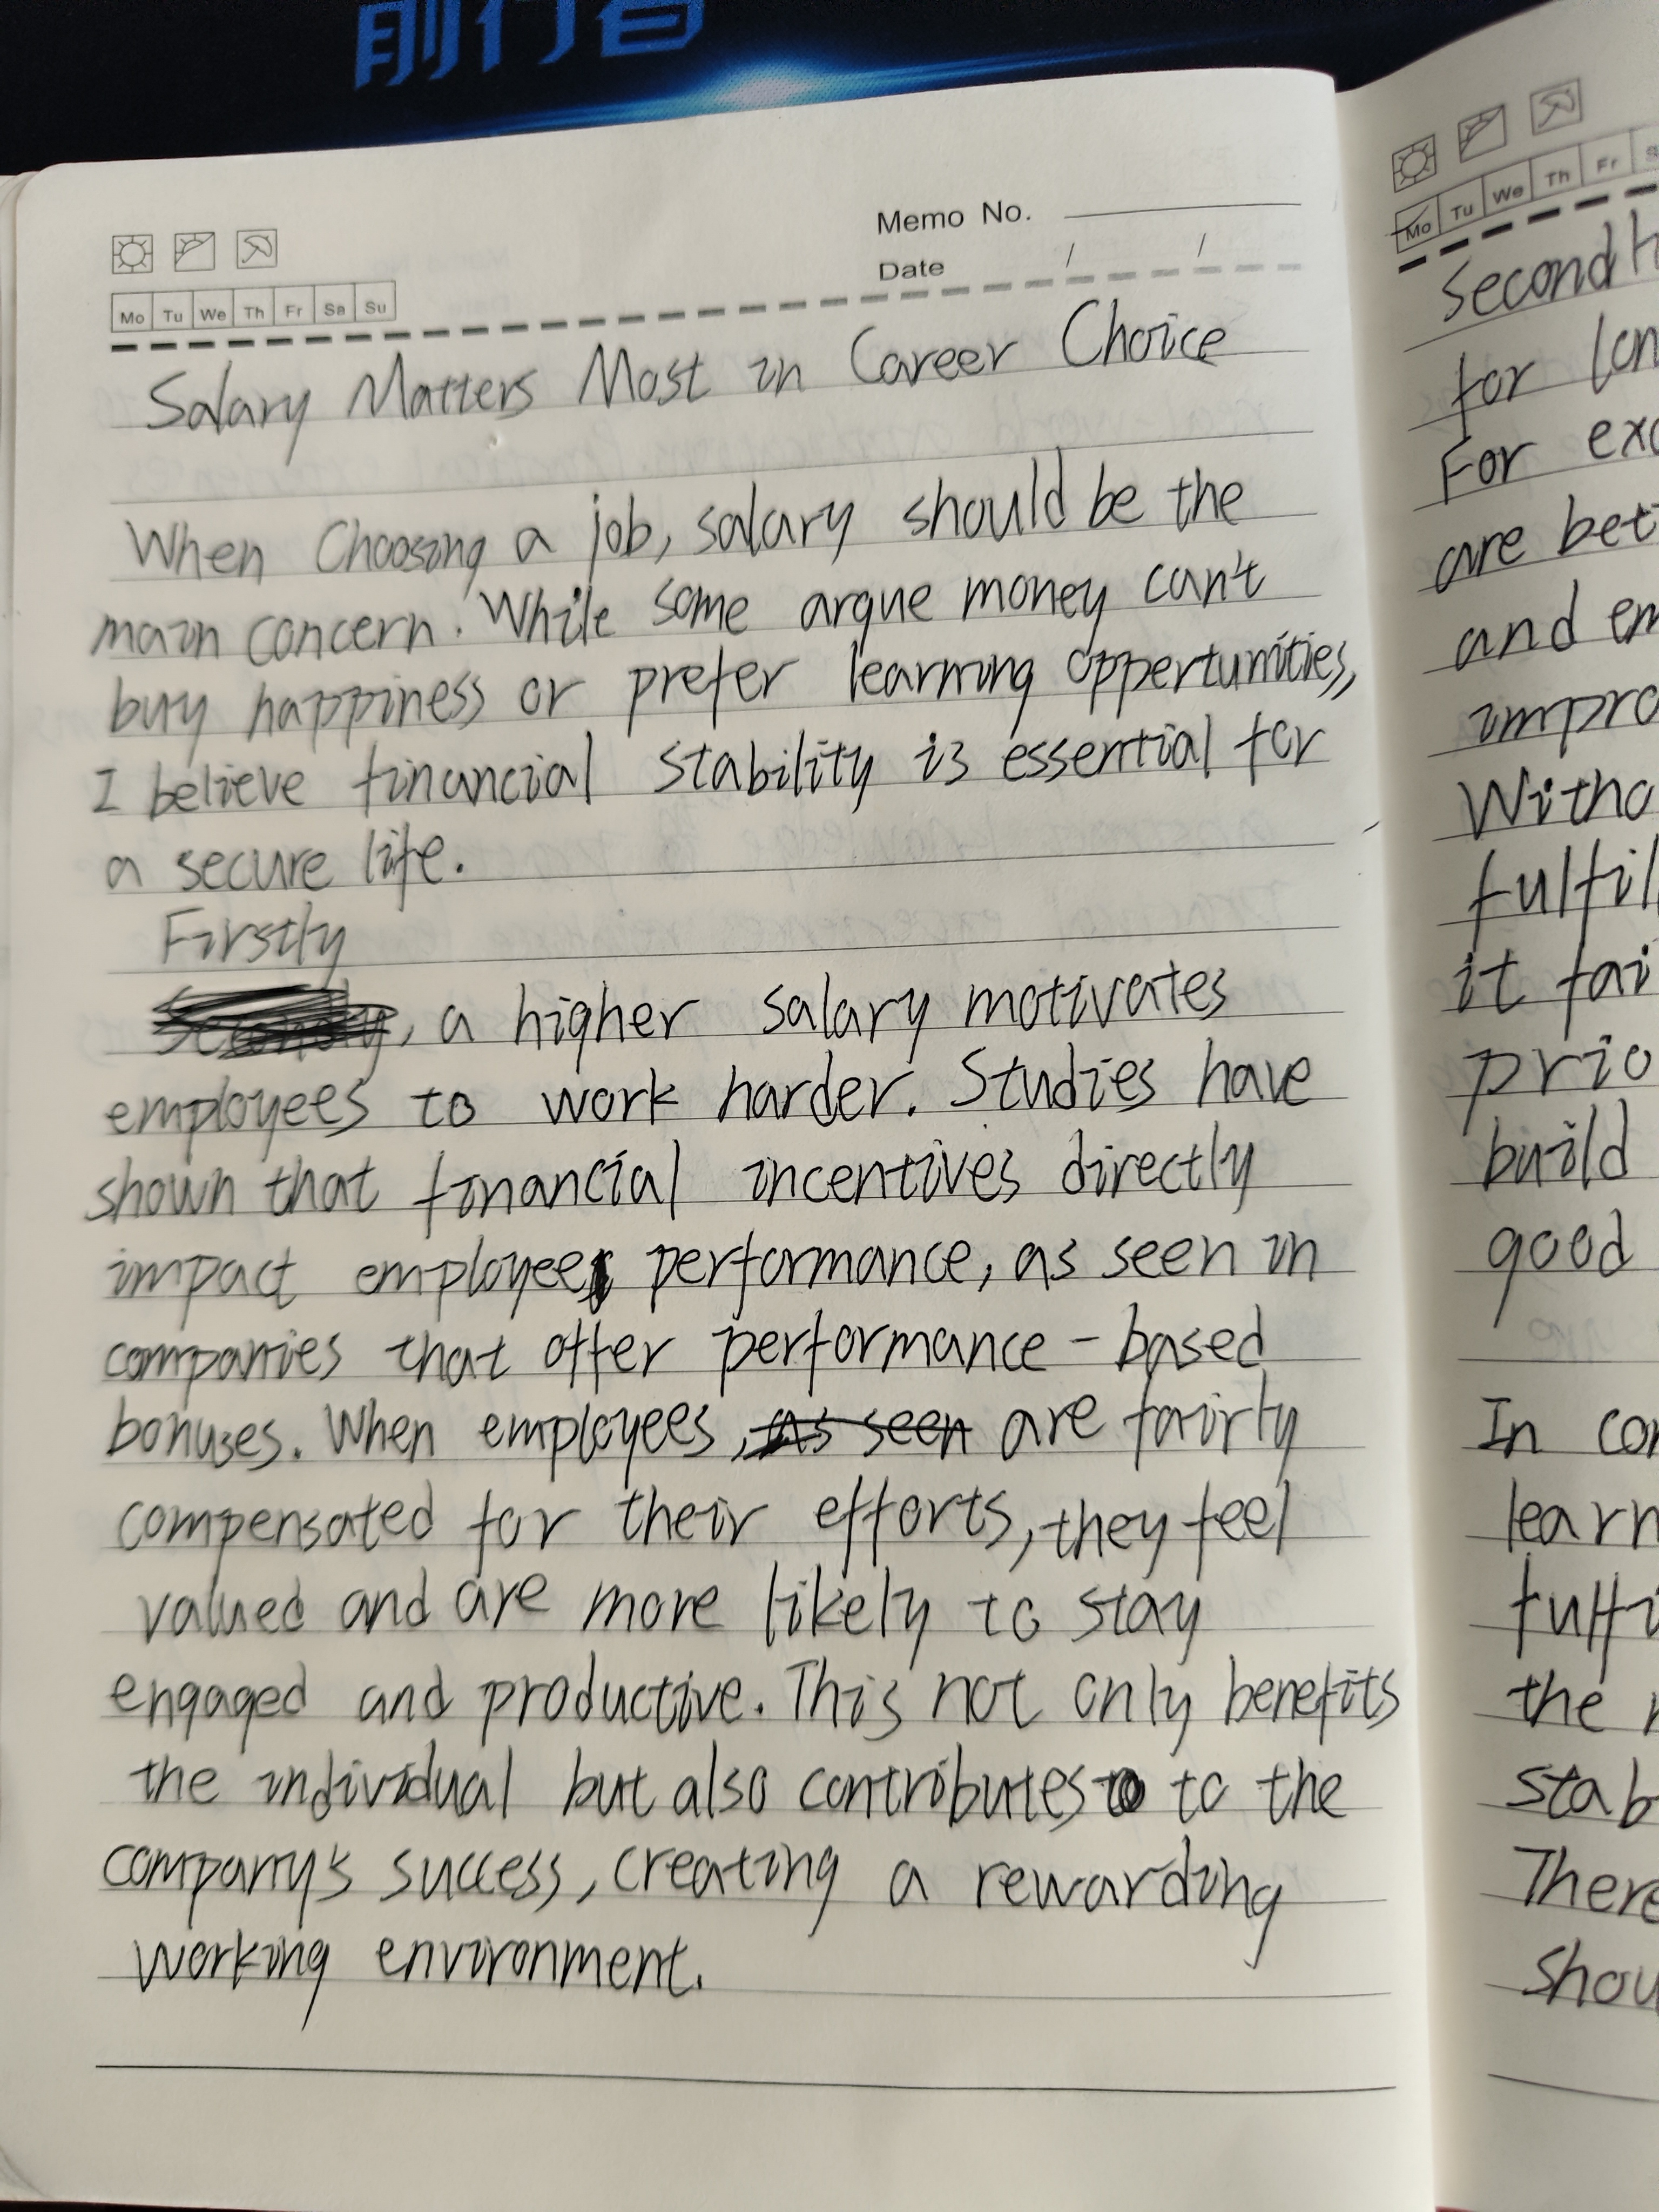 前行者
Memo No.
Date / /
Mo Tu We Th Fr Sa Su
Salary Matters Most in Career Choice
When Choosing a job, salary should be the
main concern. While some argue money can't
buy happiness or prefer learning oppertunities,
I believe financial stability is essential for
a secure life.
Firstly
, a higher salary motivates
employees to work harder. Studies have
shown that financial incentives directly
impact employee performance, as seen in
companies that offer performance-based
bonuses. When employees, as seen are fairly
compensated for their efforts, they feel
valued and are more likely to stay
engaged and productive. This not only benefits
the individual but also contributes to the
company's success, creating a rewarding
working environment.
Mo Tu We Th Fr
Second
for
For
are
and
it
build
good
In
the